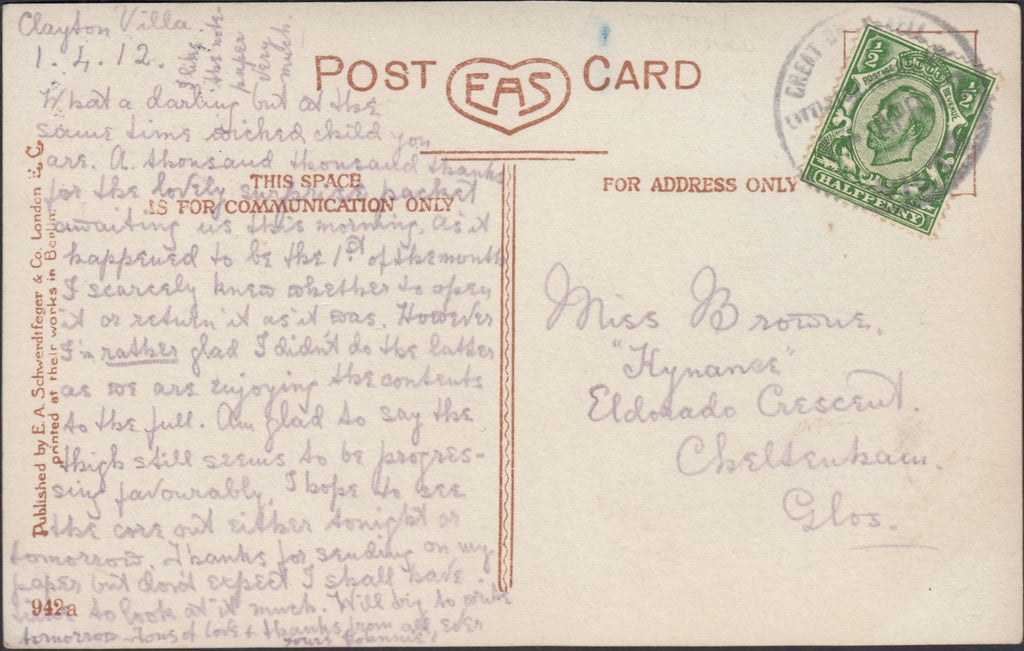 Clayton Villa.
1.4.12.
I like
the note-
paper
very
much.
POST EAS CARD
What a darling but at the
same time wicked child you
are. A thousand thousand thanks
for the lovely surprise packet
awaiting us this morning. As it
happened to be the 1st of the month
I scarcely knew whether to open
it or return it as it was. However
I'm rather glad I didn't do the latter
as we are enjoying the contents
to the full. Am glad to say the
thigh still seems to be progres-
sing favourably. I hope to see
the core out either tonight or
tomorrow. Thanks for sending on my
paper but don't expect I shall have
time to look at it much. Will try to write
tomorrow. Tons of love & thanks from all, Ever
yours
THIS SPACE
IS FOR COMMUNICATION ONLY
FOR ADDRESS ONLY
Published by E. A. Schwerdtfeger & Co. London E. C.
Printed at their works in Berlin.
942a
GREAT
LITTLE
½ ½
POSTAGE REVENUE
HALFPENNY
Miss Browne,
"Kynance"
Eldorado Crescent.
Cheltenham.
Glos.